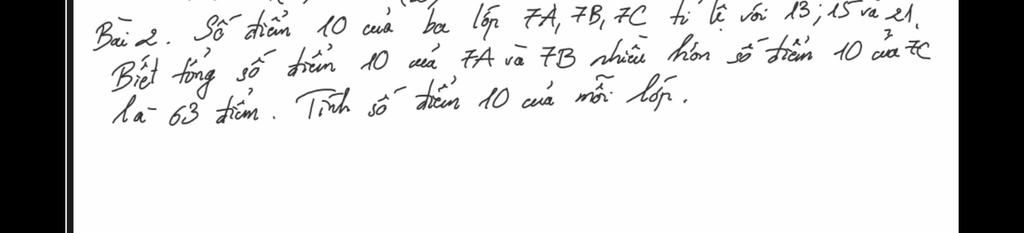 Bài 2. Số điểm 10 của ba lớp 7A, 7B, 7C tỉ lệ với 13; 15 và 21.
Biết tổng số điểm 10 của 7A và 7B nhiều hơn số điểm 10 của 7C
là 63 điểm. Tính số điểm 10 của mỗi lớp.